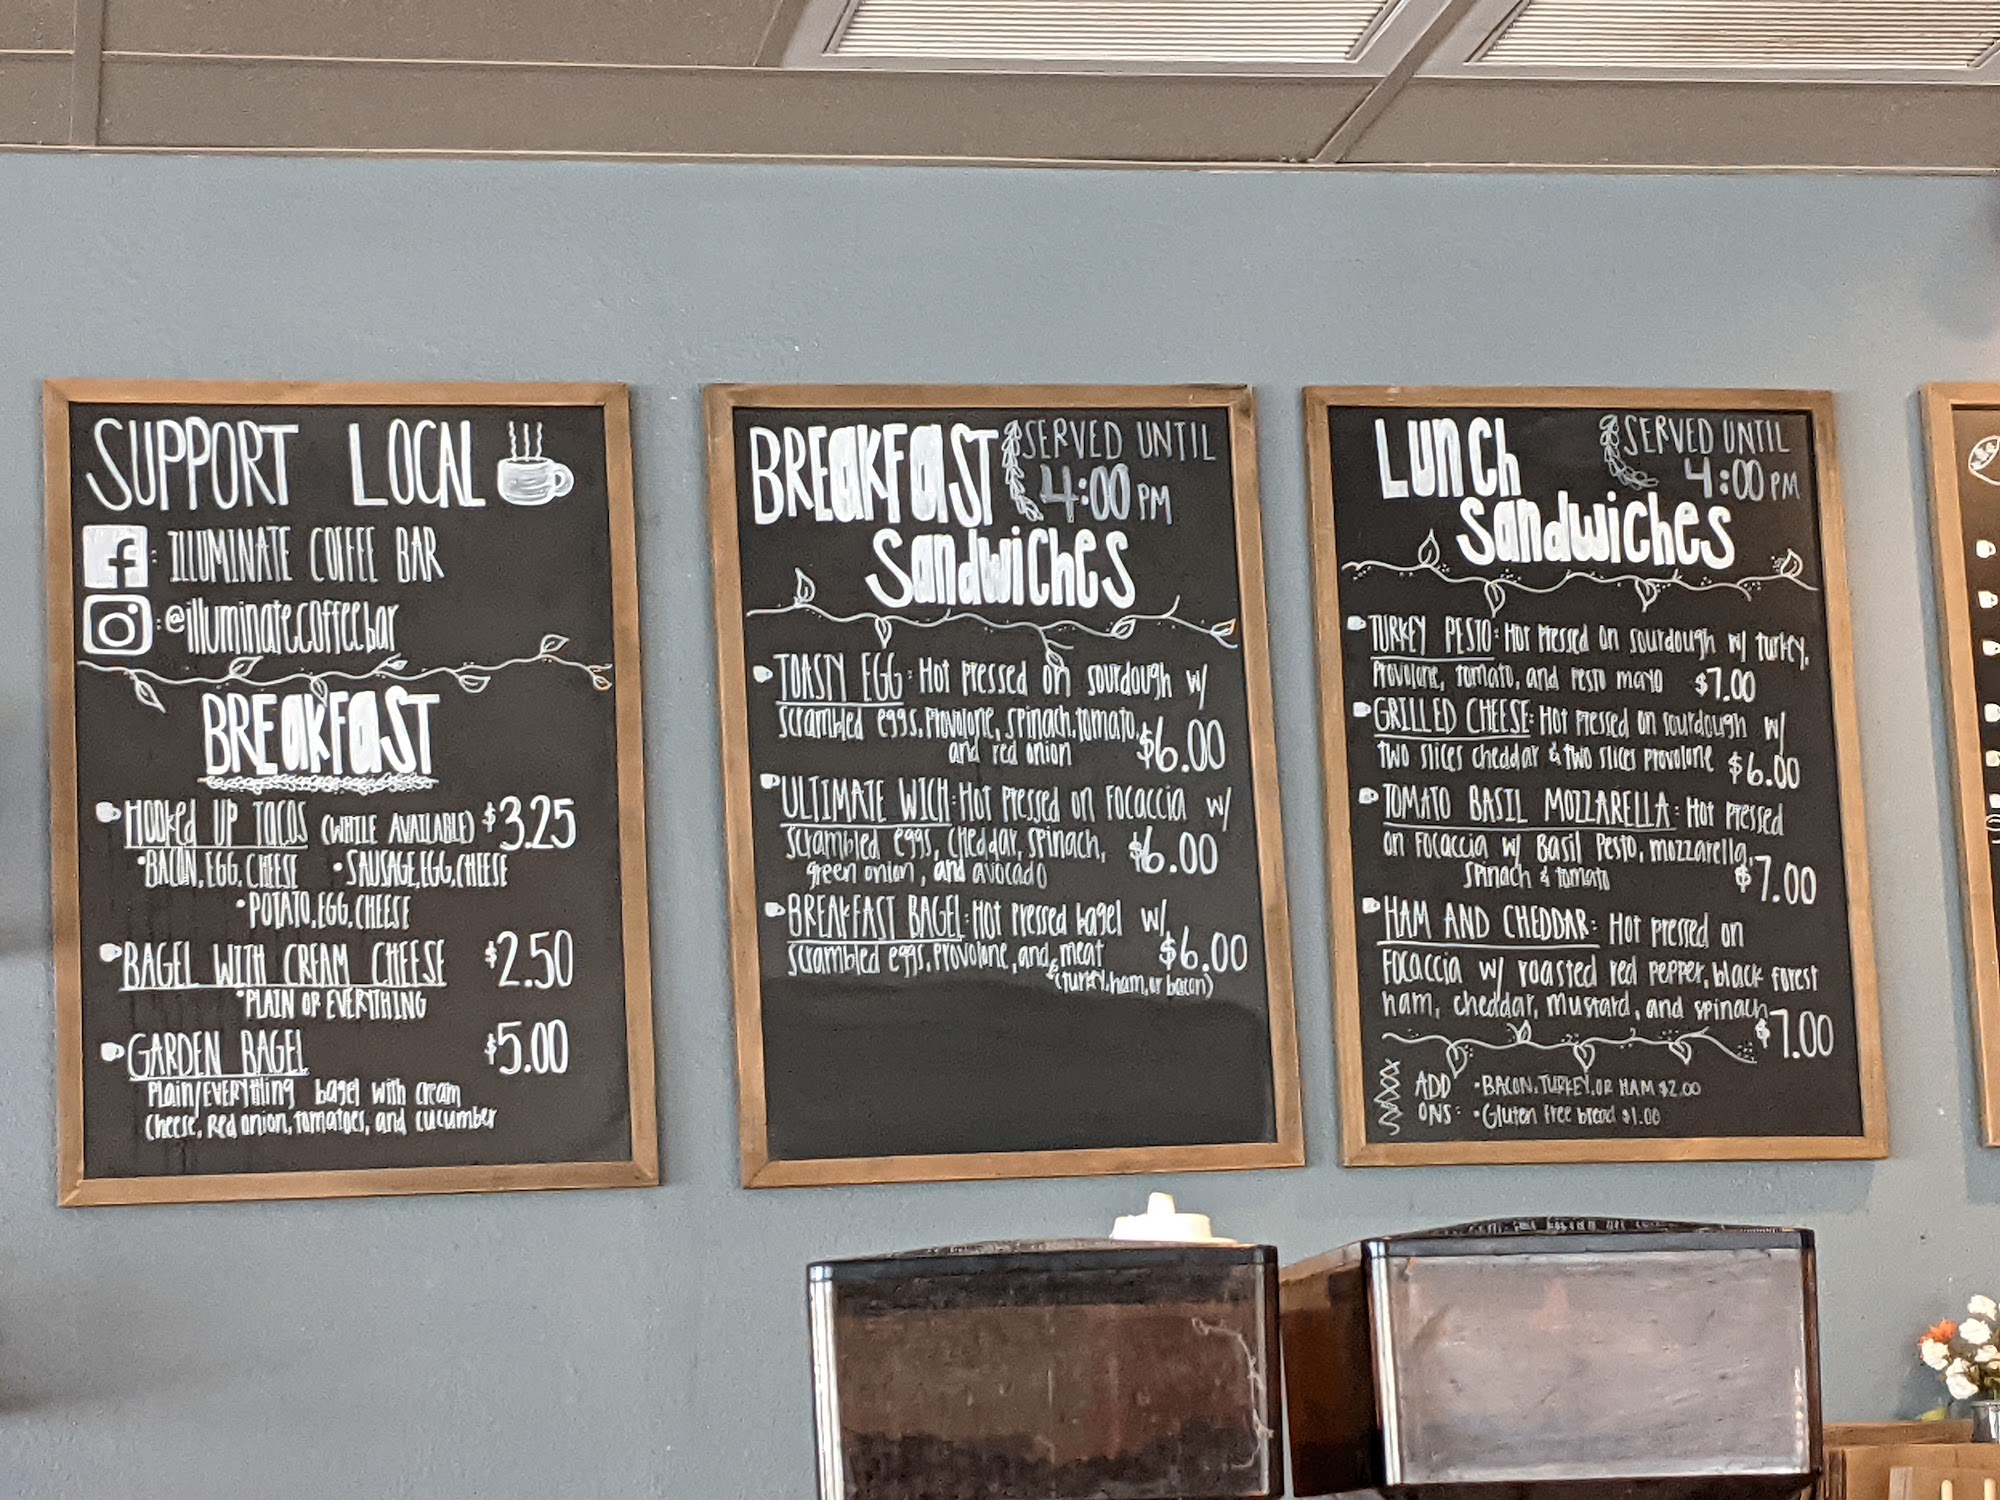 SUPPORT LOCAL
f : ILLUMINATE COFFEE BAR
: @illuminatecoffeebar
BREAKFAST
HOOKED UP TACOS (WHILE AVAILABLE) $3.25
•BACON, EGG, CHEESE •SAUSAGE, EGG, CHEESE
•POTATO, EGG, CHEESE
BAGEL WITH CREAM CHEESE $2.50
•PLAIN OR EVERYTHING
GARDEN BAGEL $5.00
Plain/EVERYthing bagel with cream
cheese, Red onion, tomatoes, and cucumber
BREAKFAST SERVED UNTIL
4:00 PM
Sandwiches
TOASTY EGG: Hot pressed on sourdough w/
scrambled eggs, provolone, spinach, tomato,
and red onion $6.00
ULTIMATE WICH: Hot pressed on focaccia w/
scrambled eggs, cheddar, spinach,
green onion, and avocado $6.00
BREAKFAST BAGEL: Hot pressed bagel w/
scrambled eggs, provolone, and meat $6.00
(turkey, ham, or bacon)
Lunch SERVED UNTIL
4:00 PM
Sandwiches
TURKEY PESTO: Hot pressed on sourdough w/ turkey,
provolone, tomato, and pesto mayo $7.00
GRILLED CHEESE: Hot pressed on sourdough w/
two slices cheddar & two slices provolone $6.00
TOMATO BASIL MOZZARELLA: Hot pressed
on focaccia w/ Basil pesto, mozzarella,
spinach & tomato $7.00
HAM AND CHEDDAR: Hot pressed on
focaccia w/ roasted red pepper, black forest
ham, cheddar, mustard, and spinach $7.00
ADD •BACON, TURKEY, OR HAM $2.00
ONS: •Gluten free bread $1.00